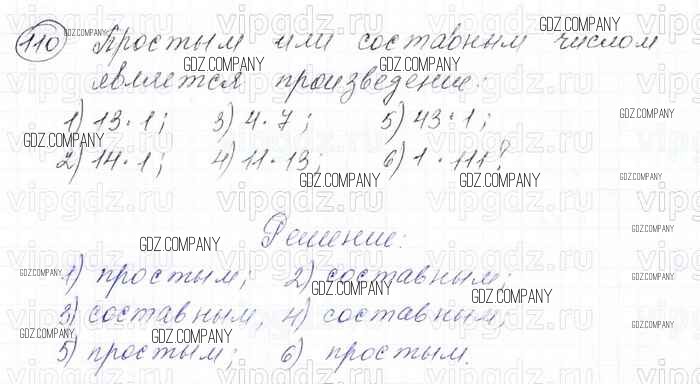 110 Простым или составным числом
является произведение:
1) 13 · 1; 3) 4 · 7; 5) 43 · 1;
2) 14 · 1; 4) 11 · 13; 6) 1 · 111?
Решение:
1) простым; 2) составным;
3) составным, 4) составным;
5) простым; 6) простым.